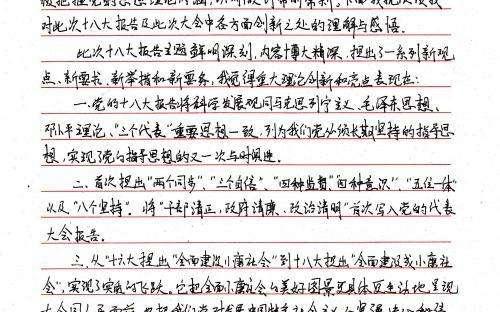 对此次十八大报告及此次大会中各方面创新之处的理解与感悟。
此次十八大报告主题鲜明深刻，内容博大精深，提出了一系列新观
点、新要求、新举措和新要务，我觉得重大理论创新和亮点表现在：
一.党的十八大报告将科学发展观同马克思列宁主义、毛泽东思想、
邓小平理论、"三个代表"重要思想一致，列为我们党必须长期坚持的指导思
想，实现了党的指导思想的又一次与时俱进。
二.首次提出"两个同步"、"三个自信"、"四种监督""四种意识"、"五位一体"
以及"八个坚持"。将"干部清正，政府清廉，政治清明"首次写入党的代表
大会报告。
三.从"十六大提出"全面建设小康社会"到十八大提出"全面建成小康社
会"，实现了实质的飞跃。它把全面小康社会的美好图景更具体更生动地呈现